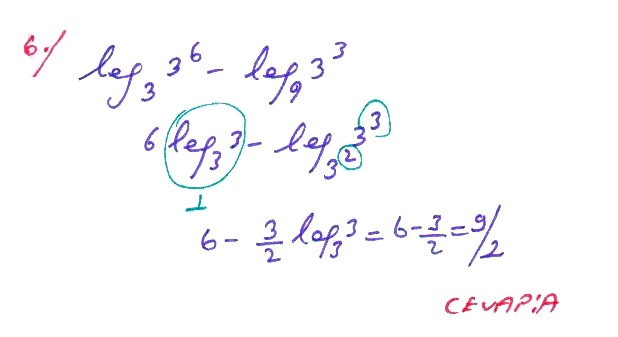 6./ log₃ 3⁶ - log₉ 3³
6 log₃ 3 - log₃² 3³
1
6 - 3/2 log₃ 3 = 6 - 3/2 = 9/2
CEVAP:A